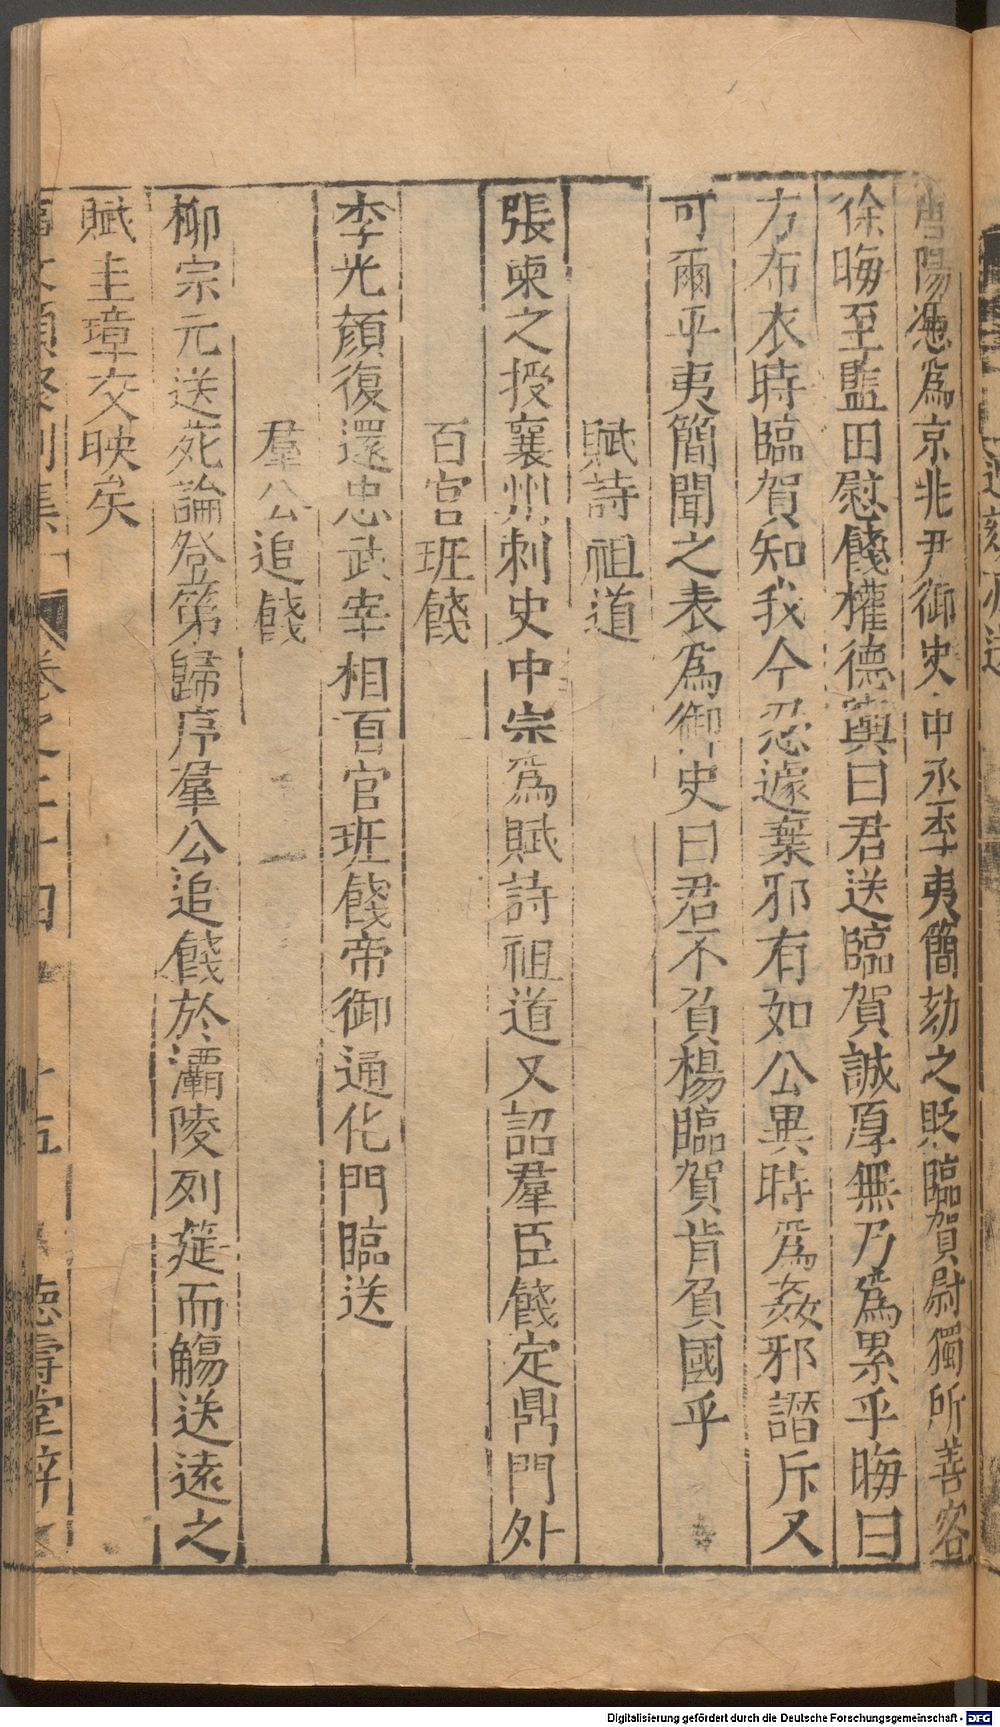 唐陽慿爲京兆尹御史中丞李夷簡劾之貶臨賀尉獨所善客
徐晦至藍田慰餞權德輿曰君送臨賀誠厚無乃爲累乎晦曰
方布衣時臨賀知我今忍遽棄邪有如公異時爲姦邪譖斥又
可爾乎夷簡聞之表爲御史曰君不負楊臨賀肯負國乎
賦詩祖道
張柬之授襄州刺史中宗爲賦詩祖道又詔羣臣餞定鼎門外
百官班餞
李光顔復還忠武宰相百官班餞帝御通化門臨送
羣公追餞
柳宗元送苑論登第歸序羣公追餞於灞陵列筵而觴送遠之
賦圭璋交映矣
卷之二十四
十五
德壽堂梓
Digitalisierung gefördert durch die Deutsche Forschungsgemeinschaft - DFG